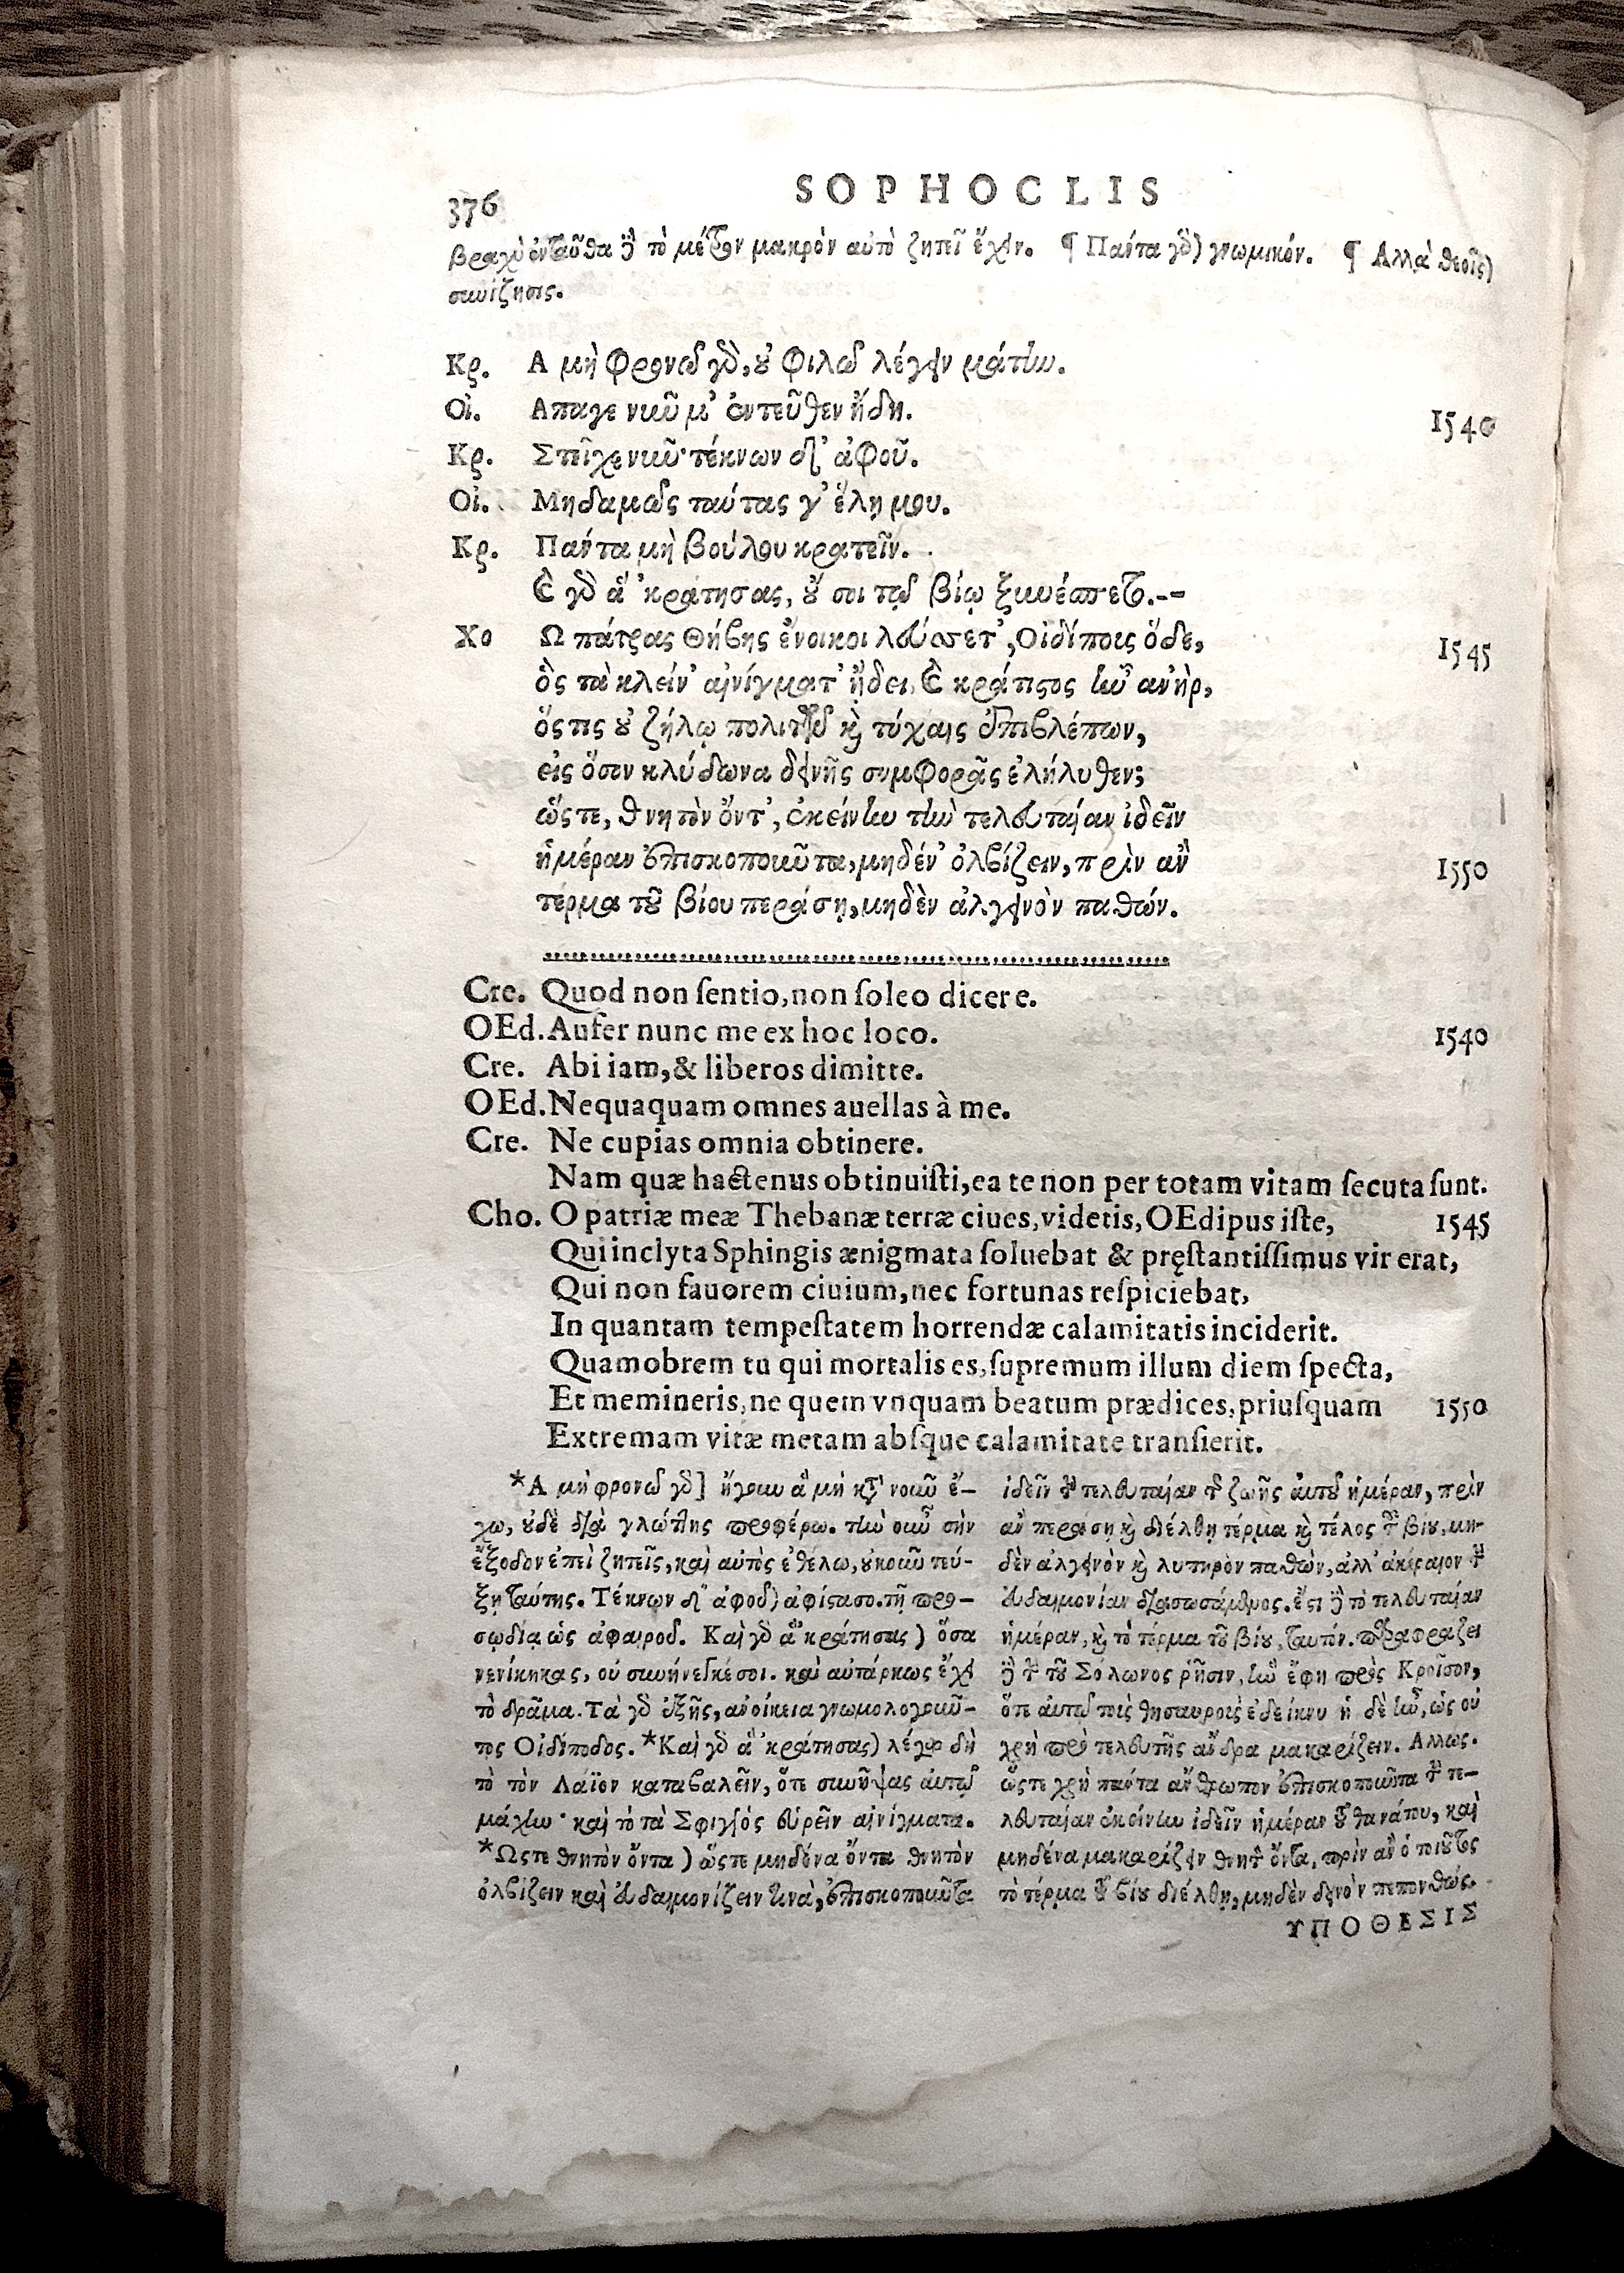 376 SOPHOCLIS
βραχὺ ἐνταῦθα ὃ τὸ μέτρον μακρὸν αὐτὸ ζητεῖ ἔχειν. ¶ Πάντα γδ) γνωμικόν. ¶ Αλλὰ θεοῖς)
συνίζησις.
Κρ. Α μὴ φρονῶ γὸ, οὐ φιλῶ λέγειν μάτην.
Οἰ. Απαγε νῦν μ' ἐντεῦθεν ἤδη.
1540
Κρ. Στεῖχε νῦν· τέκνων δ' ἀφοῦ.
Οἰ. Μηδαμῶς ταύτας γ' ἕλῃ μου.
Κρ. Πάντα μὴ βούλου κρατεῖν.
Καὶ γὸ ἃ 'κράτησας, οὔ σοι τῷ βίῳ ξυνέσπετο.--
Χο Ω πάτρας Θήβης ἔνοικοι λεύσσετ', Οἰδίποις ὅδε,
1545
ὃς τὰ κλείν' αἰνίγματ' ᾔδει, καὶ κράτιστος ἦν ἀνὴρ,
ὅστις οὐ ζήλῳ πολιτῶν καὶ τύχαις ἐπιβλέπων,
εἰς ὅσον κλύδωνα δεινῆς συμφορᾶς ἐλήλυθεν;
ὥστε, θνητὸν ὄντ', ἐκείνην τὴν τελευταίαν ἰδεῖν
ἡμέραν ἐπισκοποῦντα, μηδέν' ὀλβίζειν, πρὶν ἂν
1550
τέρμα τοῦ βίου περάσῃ, μηδὲν ἀλγεινὸν παθών.
Cre. Quod non ſentio, non ſoleo dicere.
OEd. Aufer nunc me ex hoc loco. 1540
Cre. Abi iam, & liberos dimitte.
OEd. Nequaquam omnes auellas à me.
Cre. Ne cupias omnia obtinere.
Nam quæ hactenus obtinuiſti, ea te non per totam vitam ſecuta ſunt.
Cho. O patriæ meæ Thebanæ terræ ciues, videtis, OEdipus iſte, 1545
Qui inclyta Sphingis ænigmata ſoluebat & pręſtantiſſimus vir erat,
Qui non fauorem ciuium, nec fortunas reſpiciebat,
In quantam tempeſtatem horrendæ calamitatis inciderit.
Quamobrem tu qui mortalis es, ſupremum illum diem ſpecta,
Et memineris, ne quem vnquam beatum prædices, priuſquam 1550
Extremam vitæ metam abſque calamitate tranſierit.
*Α μὴ φρονῶ γὸ] ἤγουν ἃ μὴ κατὰ νοῦν ἔ-
χω, οὐδὲ διὰ γλώττης προφέρω. τὴν οὖν σὴν
ἔξοδον ἐπεὶ ζητεῖς, καὶ αὐτὸς ἐθέλω, οὐκοῦν τεύ-
ξῃ ταύτης. Τέκνων δ' ἀφοδ) ἀφίστασο. τῇ προ-
σῳδίᾳ ὡς ἀφαιροδ. Καὶ γὸ ἃ 'κράτησας) ὅσα
νενίκηκας, οὐ συνήνεγκέ σοι. καὶ αὐτάρκως ἔχει
τὸ δρᾶμα. Τὰ γὸ ἑξῆς, ἀνοίκεια γνωμολογοῦν-
τος Οἰδίποδος. *Καὶ γὸ ἃ 'κράτησας) λέγω δὴ
τὸ τὸν Λάϊον καταβαλεῖν, ὅτε συνῆψας αὐτῷ
μάχην· καὶ τὸ τὰ Σφιγγὸς εὑρεῖν αἰνίγματα.
*Ωστε θνητὸν ὄντα) ὥστε μηδένα ὄντα θνητὸν
ὀλβίζειν καὶ εὐδαιμονίζειν τινὰ, ἐπισκοποῦντα
ἰδεῖν τὴν τελευταίαν τῆς ζωῆς αὐτοῦ ἡμέραν, πρὶν
ἂν περάσῃ καὶ διέλθῃ τέρμα καὶ τέλος τοῦ βίου, μη-
δὲν ἀλγεινὸν καὶ λυπηρὸν παθὼν, ἀλλ' ἀκέραιον τὴν
εὐδαιμονίαν διασωσάμενος. ἔστι δὲ τὸ τελευταίαν
ἡμέραν, καὶ τὸ τέρμα τοῦ βίου, ταυτόν. παραφράζει
δὲ τὴν τοῦ Σόλωνος ῥῆσιν, ἣν ἔφη πρὸς Κροῖσον,
ὅτε αὐτῷ τοὺς θησαυροὺς ἐδείκνυ ἡ δὲ ἦν, ὡς οὐ
χρὴ πρὸ τελευτῆς ἄνδρα μακαρίζειν. Αλλως.
ὥστε χρὴ πάντα ἄνθρωπον ἐπισκοποῦντα τὴν τε-
λευταίαν ἐκείνην ἰδεῖν ἡμέραν τοῦ θανάτου, καὶ
μηδένα μακαρίζειν θνητὸν ὄντα, πρὶν ἂν ὁ τοιοῦτος
τὸ τέρμα τοῦ βίου διέλθῃ, μηδὲν δεινὸν πεπονθώς.
ΥΠΟΘΕΣΙΣ